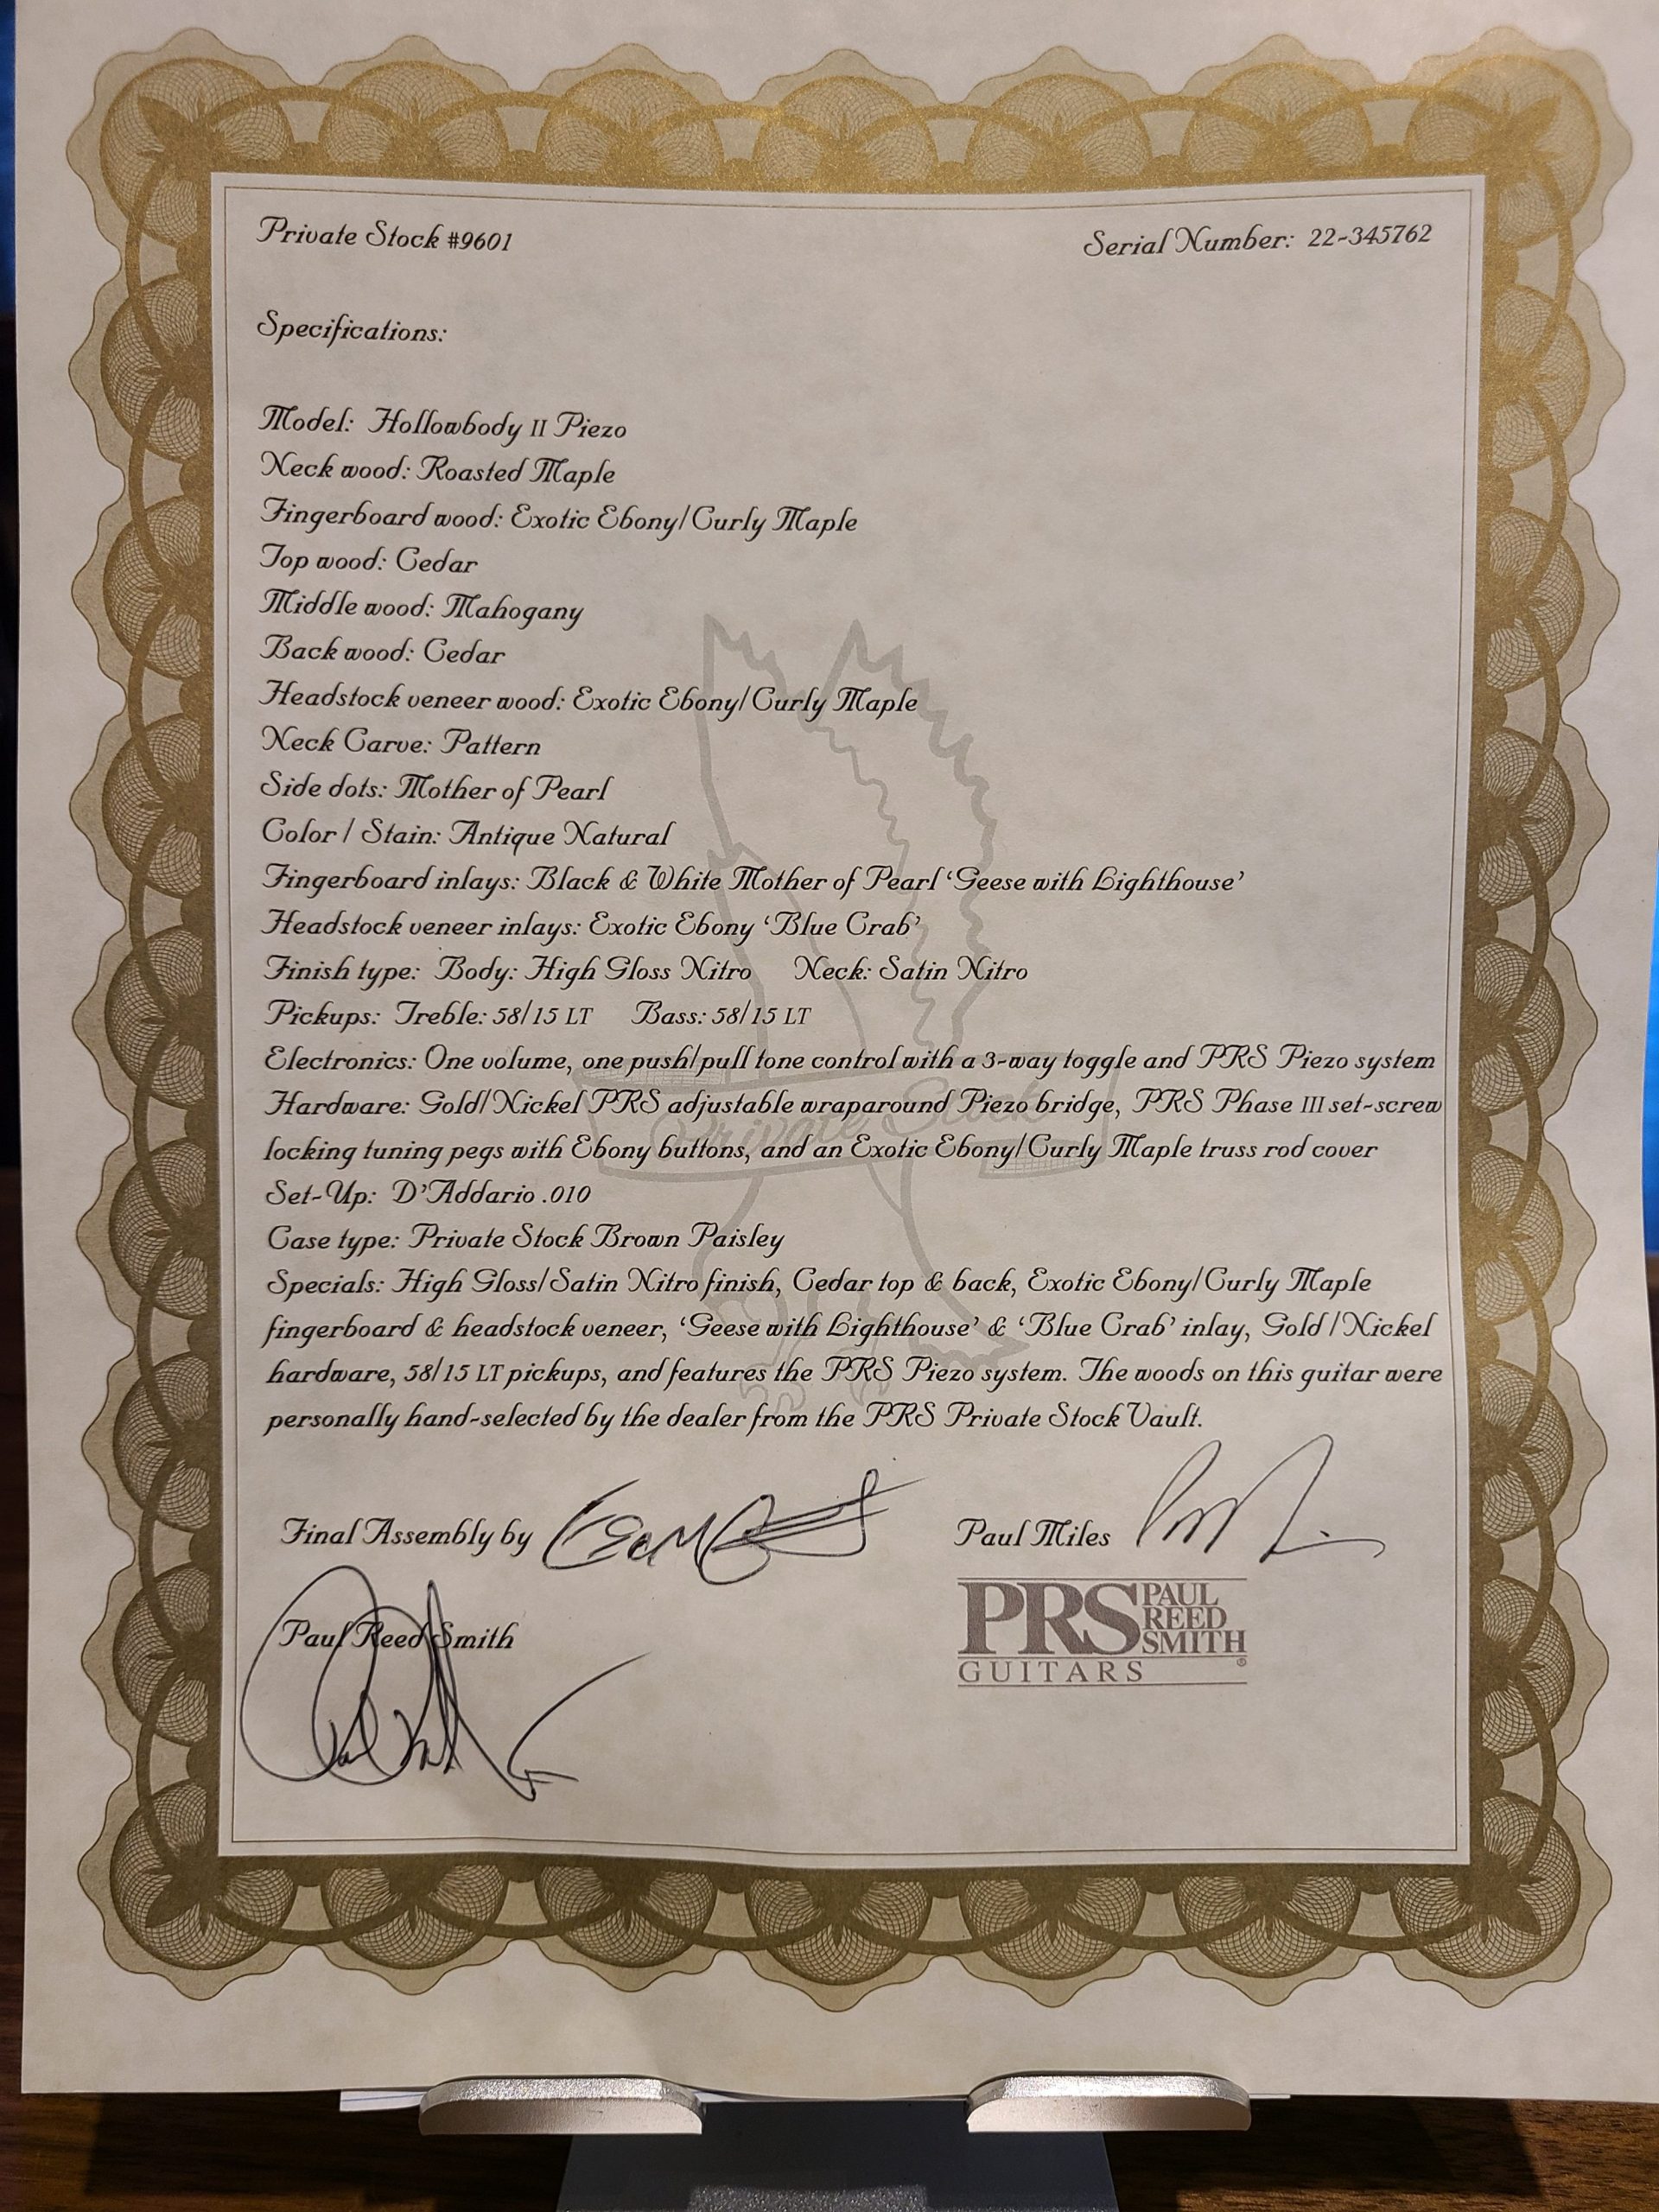 Private Stock #9601
Serial Number: 22-345762
Specifications:
Model: Hollowbody II Piezo
Neck wood: Roasted Maple
Fingerboard wood: Exotic Ebony/Curly Maple
Top wood: Cedar
Middle wood: Mahogany
Back wood: Cedar
Headstock veneer wood: Exotic Ebony/Curly Maple
Neck Carve: Pattern
Side dots: Mother of Pearl
Color / Stain: Antique Natural
Fingerboard inlays: Black & White Mother of Pearl 'Geese with Lighthouse'
Headstock veneer inlays: Exotic Ebony 'Blue Crab'
Finish type: Body: High Gloss Nitro Neck: Satin Nitro
Pickups: Treble: 58/15 LT Bass: 58/15 LT
Electronics: One volume, one push/pull tone control with a 3-way toggle and PRS Piezo system
Hardware: Gold/Nickel PRS adjustable wraparound Piezo bridge, PRS Phase III set-screw
Private Stock
locking tuning pegs with Ebony buttons, and an Exotic Ebony/Curly Maple truss rod cover
Set-Up: D'Addario .010
Case type: Private Stock Brown Paisley
Specials: High Gloss/Satin Nitro finish, Cedar top & back, Exotic Ebony/Curly Maple
fingerboard & headstock veneer, 'Geese with Lighthouse' & 'Blue Crab' inlay, Gold /Nickel
hardware, 58/15 LT pickups, and features the PRS Piezo system. The woods on this guitar were
personally hand-selected by the dealer from the PRS Private Stock Vault.
Final Assembly by
Paul Miles
Paul Reed Smith
PRS PAUL REED SMITH
GUITARS ®